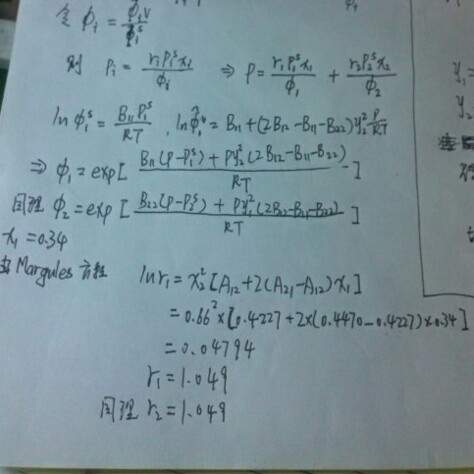 令 ϕ₁ = ϕ̂₁ᵛ/ϕ₁ˢ
则 P₁ = r₁P₁ˢx₁/ϕ₁ ⇒ P = r₁P₁ˢx₁/ϕ₁ + r₂P₂ˢx₂/ϕ₂
lnϕ₁ˢ = B₁₁P₁ˢ/RT , lnϕ̂₁ᵛ = B₁₁+(2B₁₂-B₁₁-B₂₂)y₂² P/RT
⇒ ϕ₁ = exp[ (B₁₁(P-P₁ˢ) + Py₂²(2B₁₂-B₁₁-B₂₂))/RT ]
同理 ϕ₂ = exp[ (B₂₂(P-P₂ˢ) + Py₁²(2B₁₂-B₁₁-B₂₂))/RT ]
x₁=0.34
由 Margules 方程 lnr₁ = x₂²[A₁₂+2(A₂₁-A₁₂)x₁]
=0.66²×[0.4227+2×(0.4470-0.4227)×0.34]
=0.04794
r₁=1.049
同理 r₂=1.049
y₁=
y₂